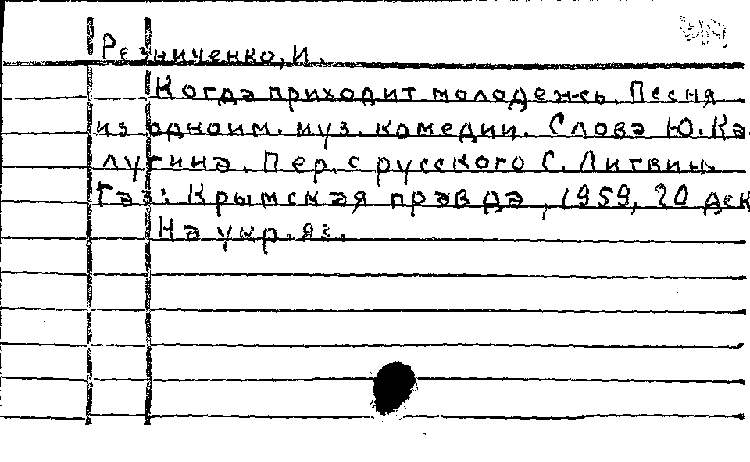 Резниченко, И.
Когда приходит молодежь. Песня
из одноим. муз. комедии. Слова Ю. Ка-
лугина. Пер. с русского С. Литвин.
Газ: Крымская правда, 1959, 20 дек
На укр. яз.